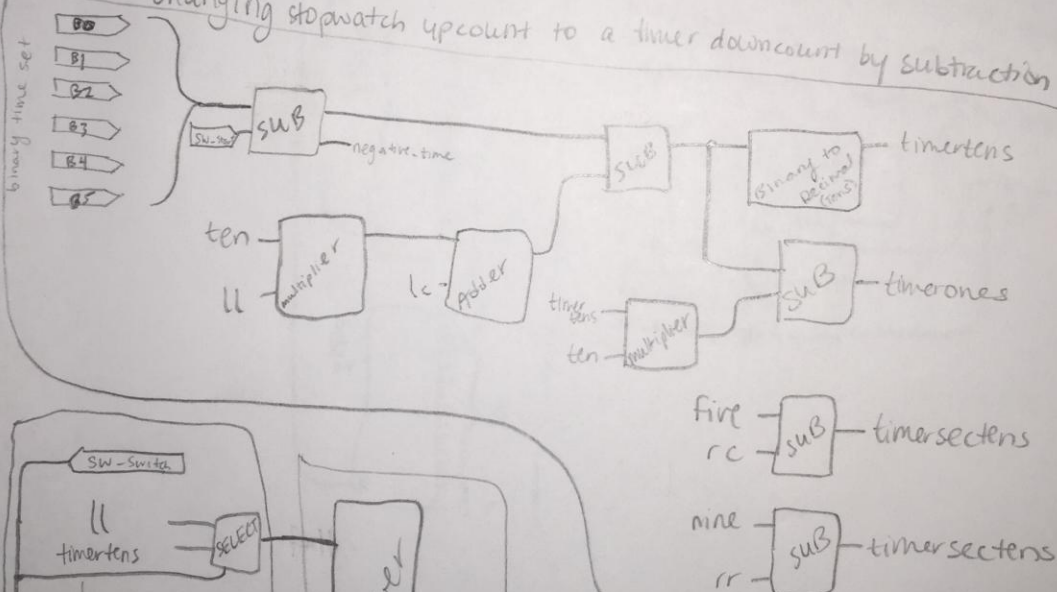 changing stopwatch upcount to a timer downcount by subtraction
binary time set
B0
B1
B2
B3
B4
B5
SUB
negative_time
SUB
Binary to
Decimal
(tens)
timertens
ten
ll
multiplier
lc
Adder
timer
tens
ten
multiplier
SUB
timerones
five
rc
SUB
timersectens
nine
rr
SUB
timersectens
SW-Switch
ll
timertens
SELECT
er